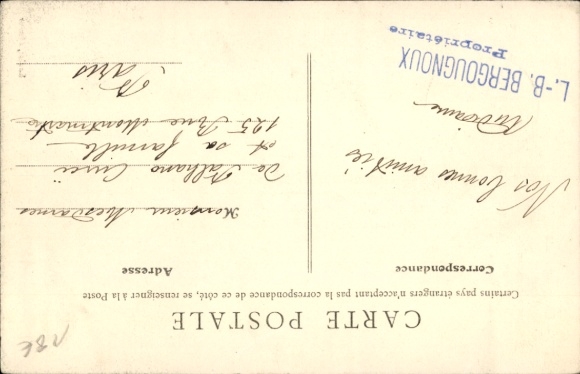 CARTE POSTALE
Certains pays étrangers n'acceptant pas la correspondance de ce côté, se renseigner à la Poste
Correspondance
Adresse
Nos bonnes amitiés
L.-B. BERGOUGNOUX
Propriétaire
Monsieur Mesdames
De
et sa famille
125 Rue Montmartre
Paris